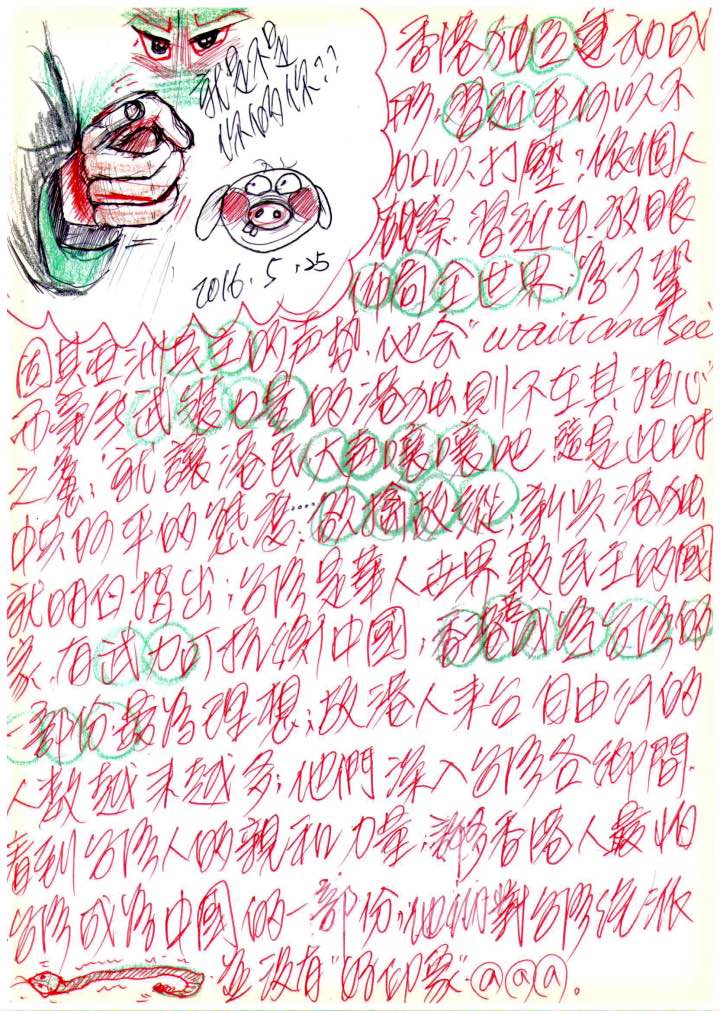 就是不是
你的你??
2016.5.25
香港独立運动成
形,習近平何以不
加以打壓?依個人
觀察,習近平放眼
佈局全世界,為了鞏
固其亞洲共主的声势,他会"wait and see"
而毫無武裝力量的港独則不在其"担心"
之裏;就讓港民大声嚷嚷吧,這是此时
中共对平的態度;……欲擒故縱;新以港独
就明白指出;台灣是華人世界較民主的國
家,有武力可抗衡中國,香港成為台灣的
一部份最為理想;故港人来台自由行的
人数越来越多;他們深入台灣各鄉間,
看到台灣人的親和力量,許多香港人最怕
台灣成為中國的一部份,他們對台灣統派
並沒有"好印象"@@@.